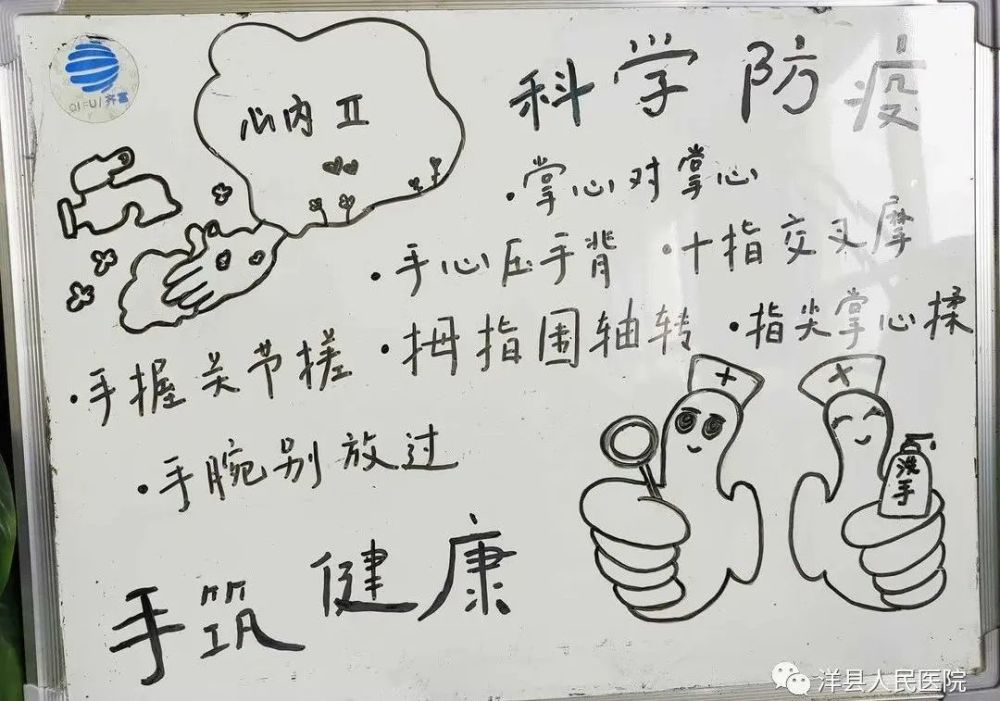 QIFUI齐富
心内Ⅱ
科学防疫
·掌心对掌心
·手心压手背 ·十指交叉摩
·手握关节搓 ·拇指围轴转 ·指尖掌心揉
·手腕别放过
洗手
手筑健康
洋县人民医院